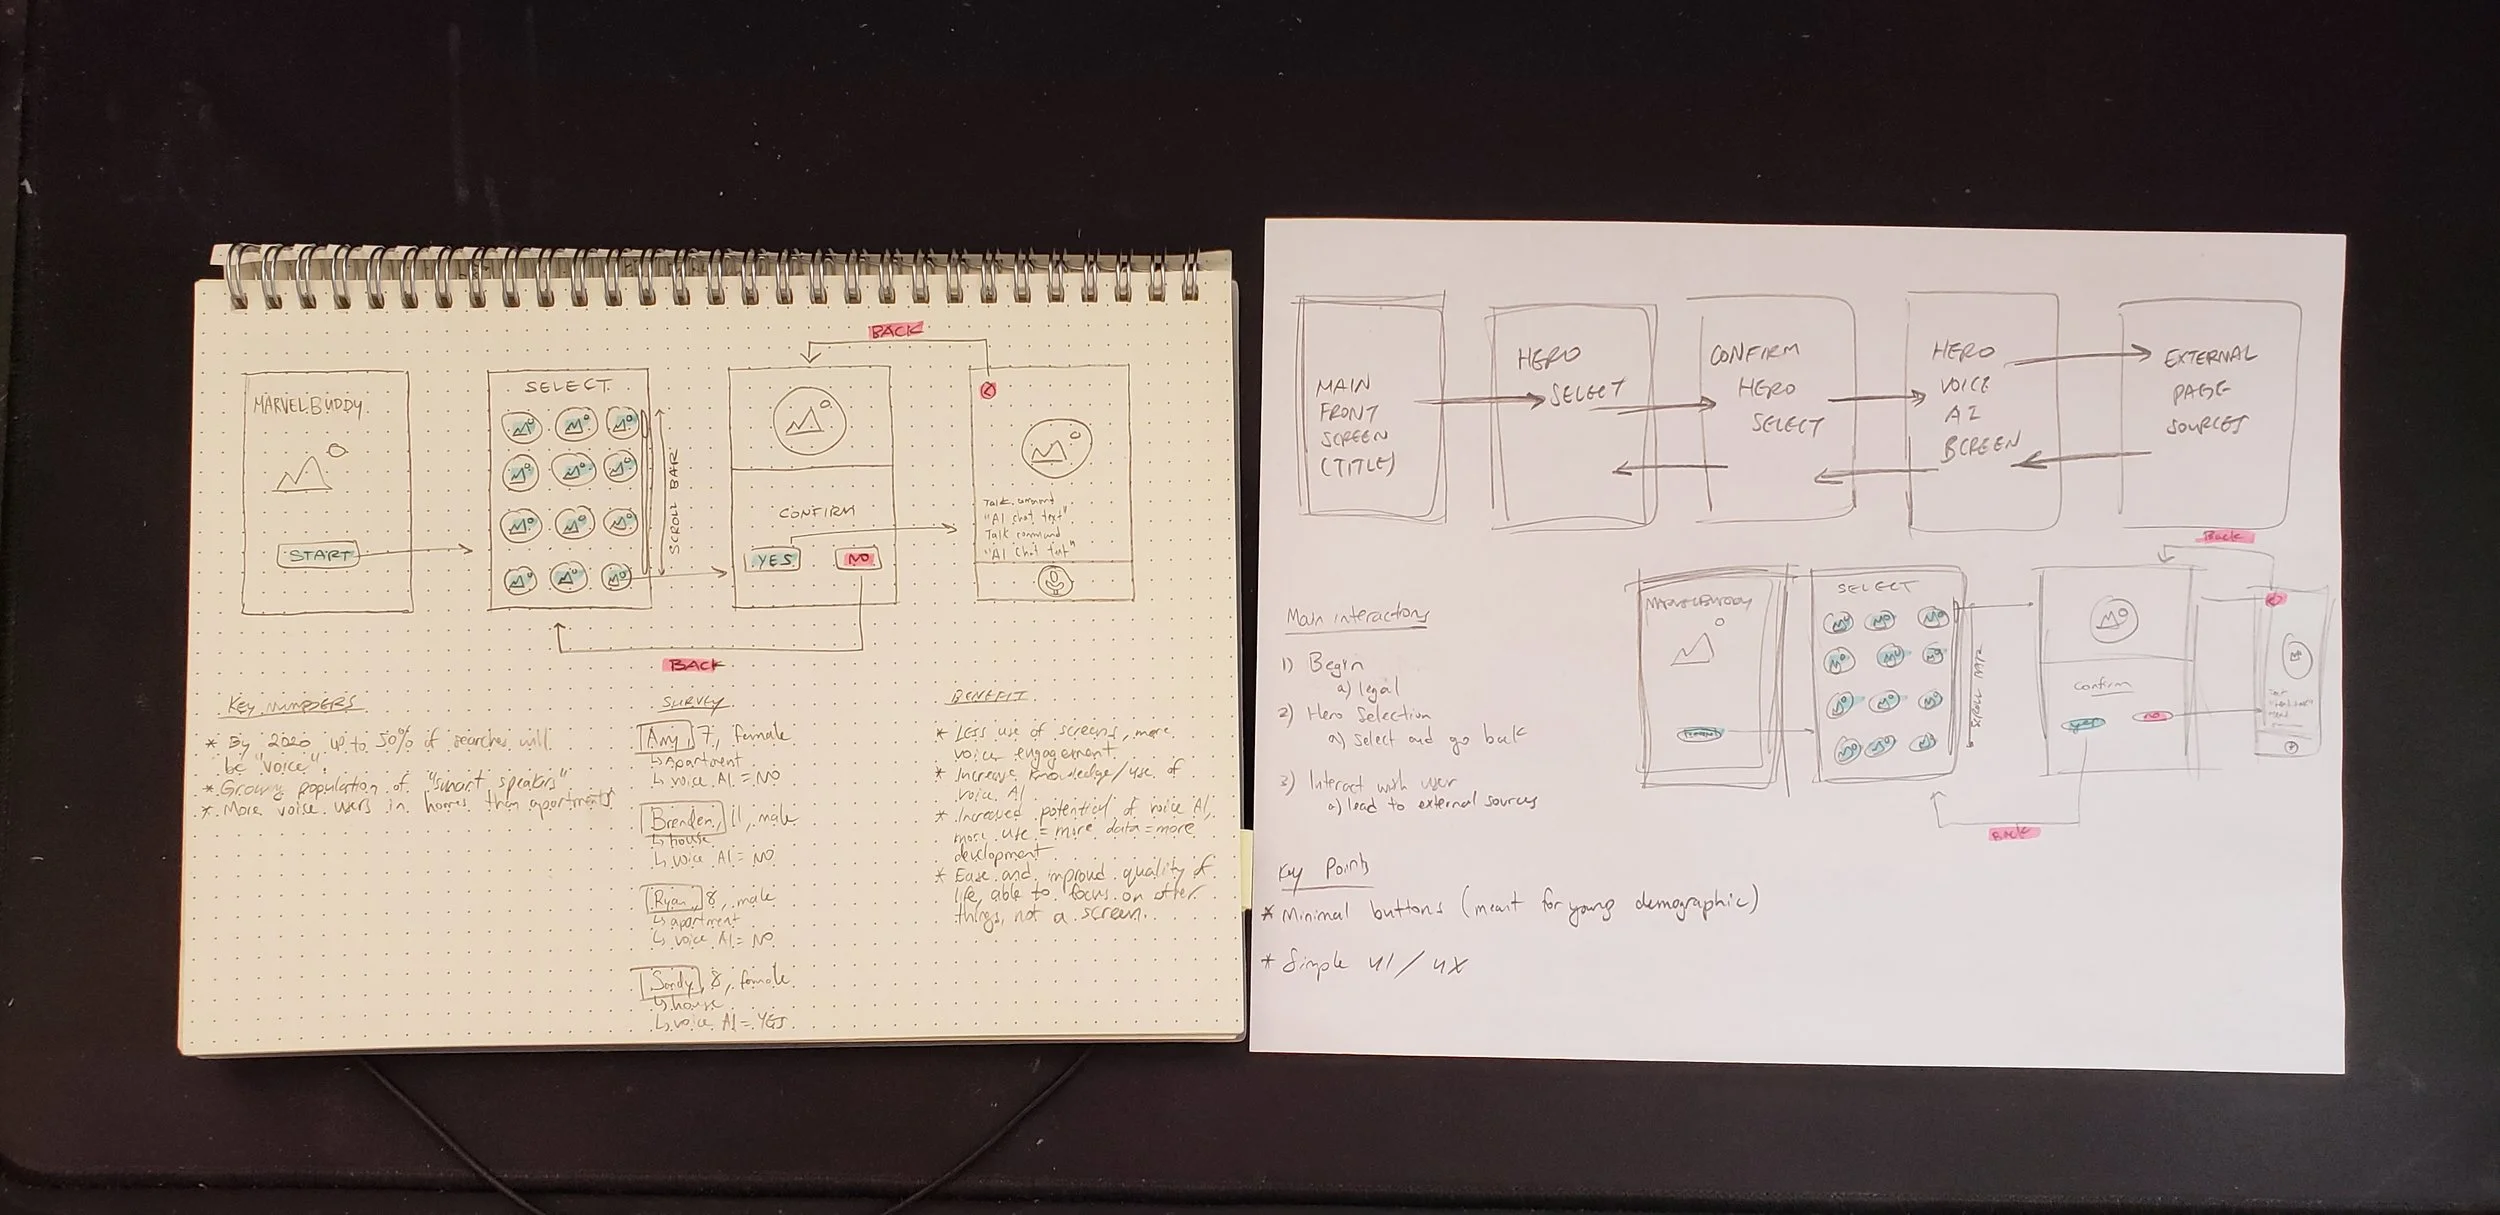 BACK
MARVELBUDDY
START
SELECT
SCROLL BAR
CONFIRM
YES
NO
Talk command
"AI chat text"
Talk command
"AI chat text"
BACK
KEY NUMBERS
* By 2020 up to 50% of searches will
be "voice".
* Growing population of "smart speakers"
* More voice users in homes than apartments
SURVEY
Amy, 7, female
↳ Apartment
↳ voice AI = NO
Brenden, 11, male
↳ house
↳ voice AI = NO
Ryan, 8, male
↳ apartment
↳ voice AI = NO
Sandy, 8, female
↳ house
↳ voice AI = YES
BENEFIT
* Less use of screens, more
voice engagement
* Increase knowledge/use of
voice AI
* Increased potential of voice AI,
more use = more data = more
development
* Ease and improud quality of
life, able to focus on other
things, not a screen.
MAIN
FRONT
SCREEN
(TITLE)
HERO
SELECT
CONFIRM
HERO
SELECT
HERO
VOICE
AI
SCREEN
EXTERNAL
PAGE
SOURCES
Main interactions
1) Begin
a) legal
2) Hero Selection
a) Select and go back
3) Interact with user
a) lead to external sources
MARVELBUDDY
SELECT
SCROLL BAR
Confirm
yes
no
Back
Back
Key Points
* Minimal buttons (meant for young demographic)
* Simple UI / UX